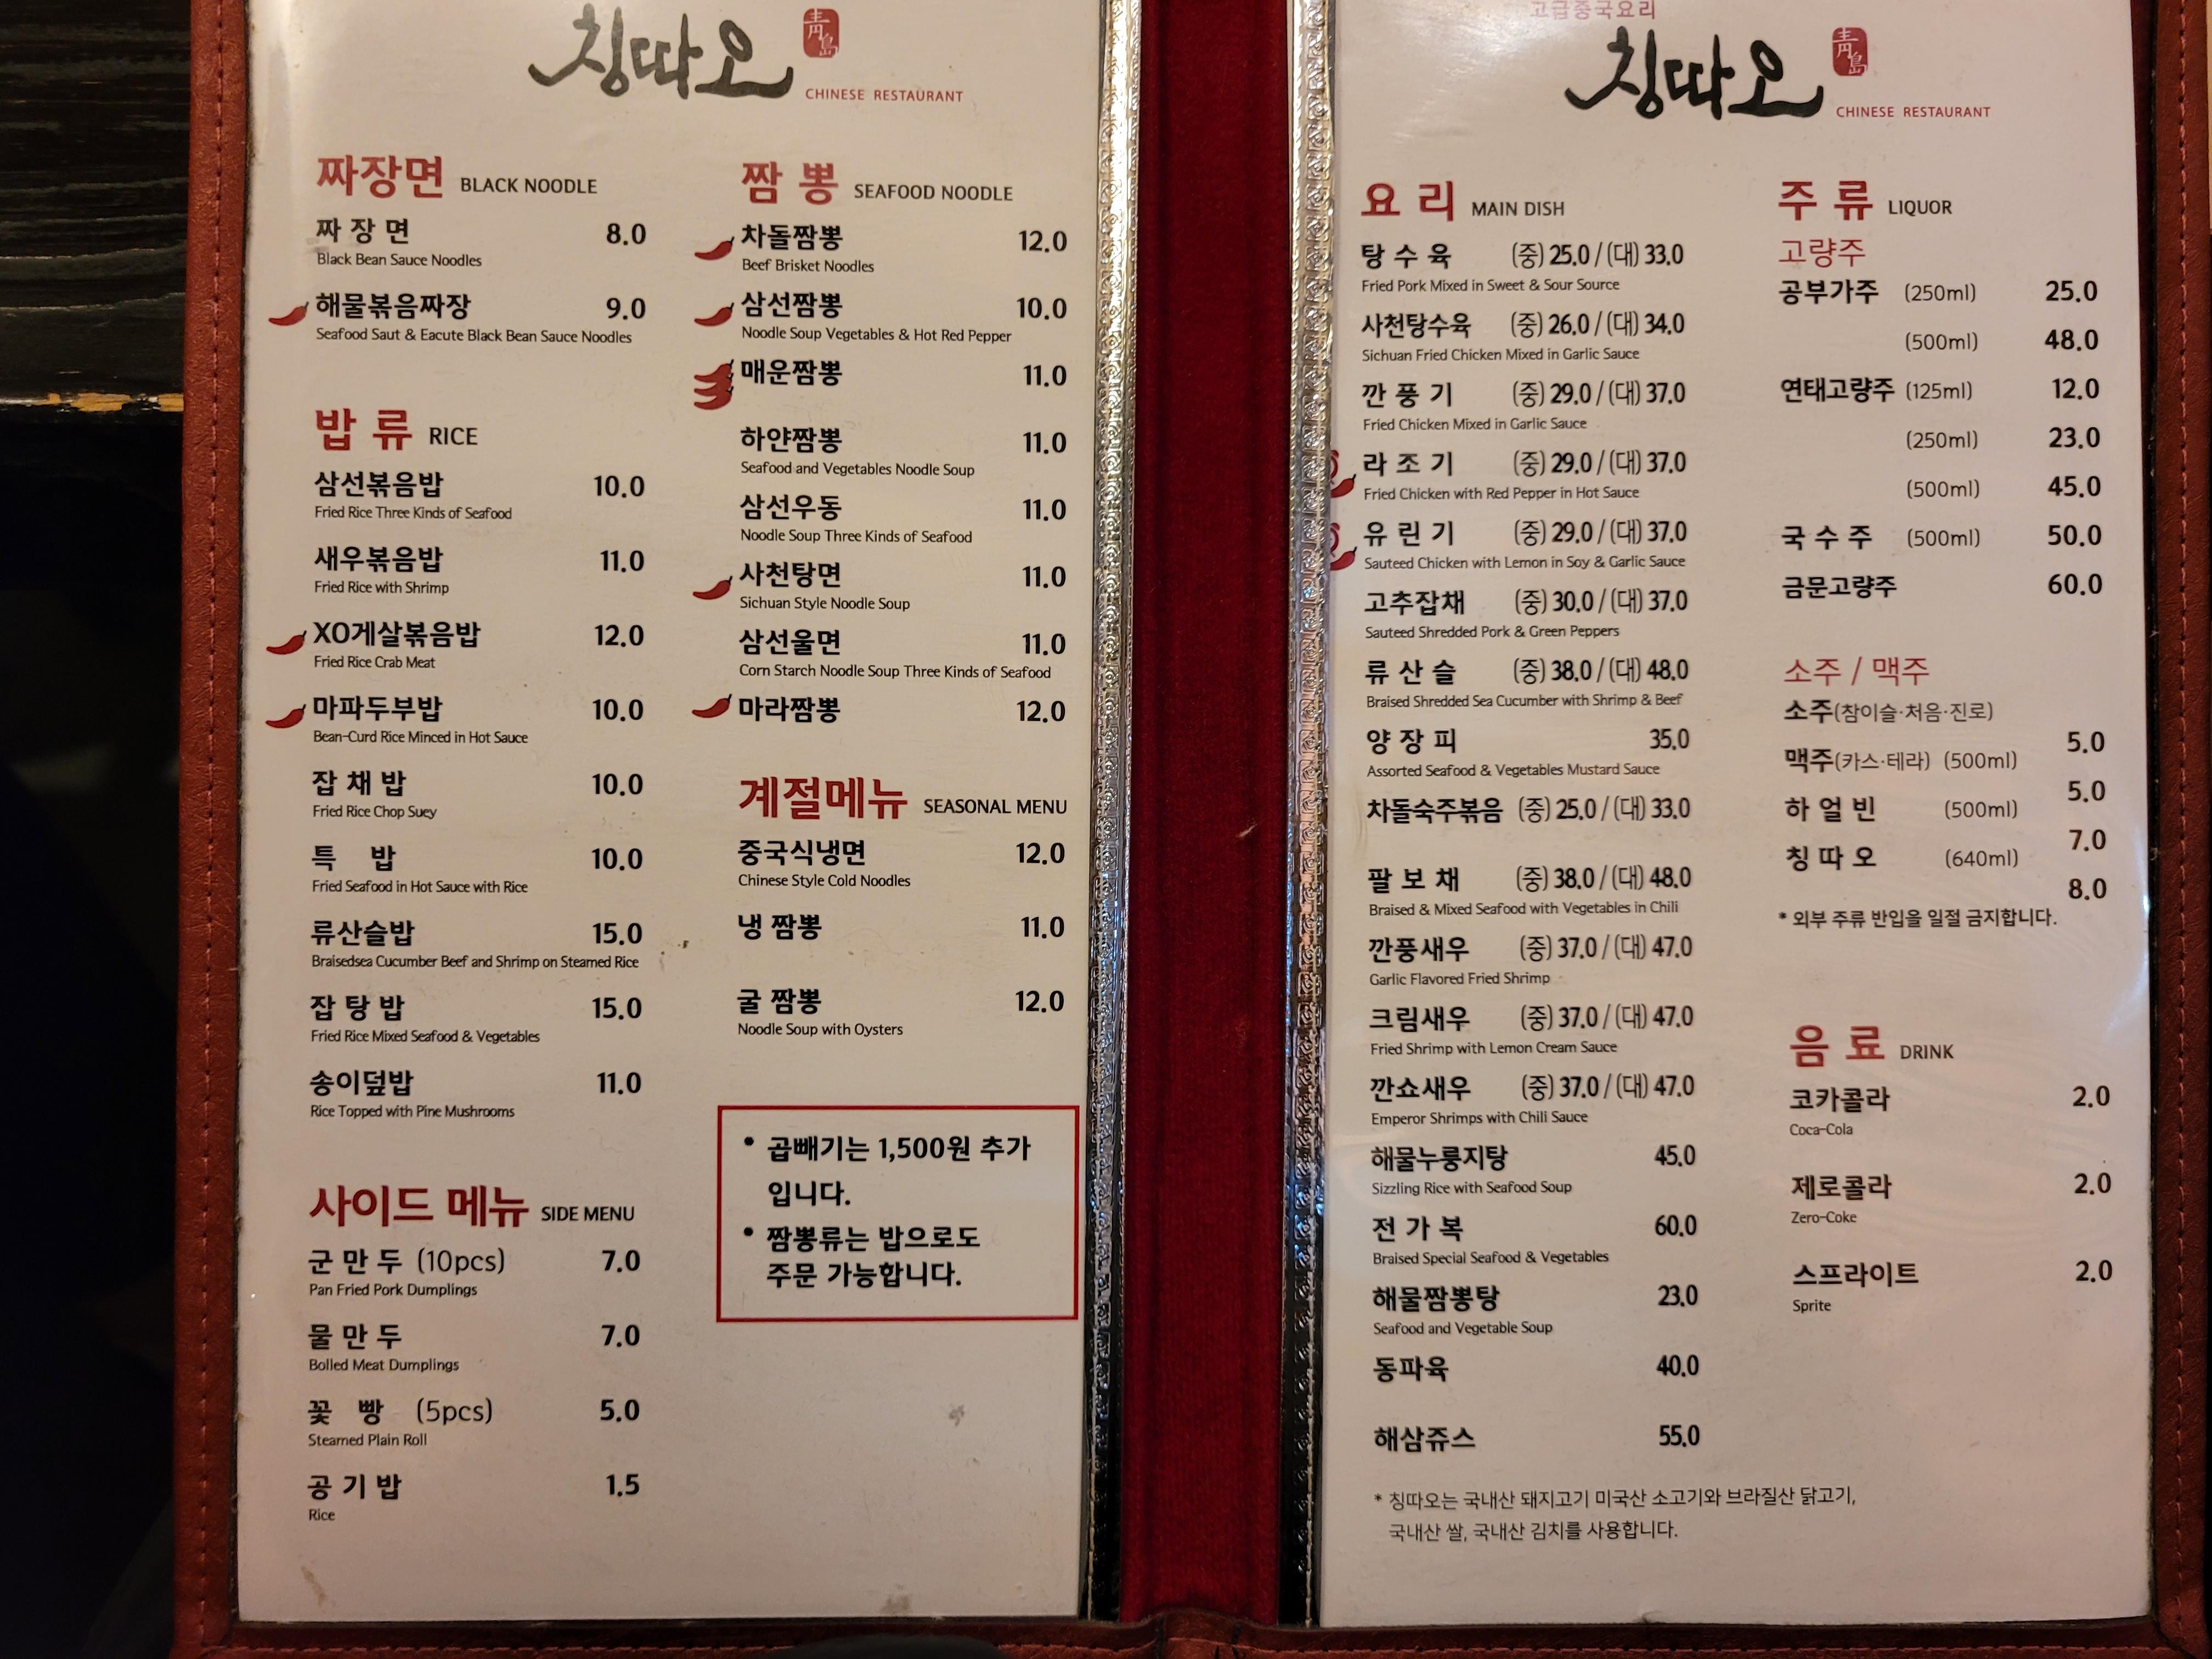 칭따오
靑島
CHINESE RESTAURANT
짜장면 BLACK NOODLE
짜장면 8.0
Black Bean Sauce Noodles
해물볶음짜장 9.0
Seafood Saut & Eacute Black Bean Sauce Noodles
밥 류 RICE
삼선볶음밥 10.0
Fried Rice Three Kinds of Seafood
새우볶음밥 11.0
Fried Rice with Shrimp
XO게살볶음밥 12.0
Fried Rice Crab Meat
마파두부밥 10.0
Bean-Curd Rice Minced in Hot Sauce
잡 채 밥 10.0
Fried Rice Chop Suey
특 밥 10.0
Fried Seafood in Hot Sauce with Rice
류산슬밥 15.0
Braisedsea Cucumber Beef and Shrimp on Steamed Rice
잡 탕 밥 15.0
Fried Rice Mixed Seafood & Vegetables
송이덮밥 11.0
Rice Topped with Pine Mushrooms
사이드 메뉴 SIDE MENU
군 만 두 (10pcs) 7.0
Pan Fried Pork Dumplings
물 만 두 7.0
Bolled Meat Dumplings
꽃 빵 (5pcs) 5.0
Steamed Plain Roll
공 기 밥 1.5
Rice
짬 뽕 SEAFOOD NOODLE
차돌짬뽕 12.0
Beef Brisket Noodles
삼선짬뽕 10.0
Noodle Soup Vegetables & Hot Red Pepper
매운짬뽕 11.0
하얀짬뽕 11.0
Seafood and Vegetables Noodle Soup
삼선우동 11.0
Noodle Soup Three Kinds of Seafood
사천탕면 11.0
Sichuan Style Noodle Soup
삼선울면 11.0
Corn Starch Noodle Soup Three Kinds of Seafood
마라짬뽕 12.0
계절메뉴 SEASONAL MENU
중국식냉면 12.0
Chinese Style Cold Noodles
냉 짬뽕 11.0
굴 짬뽕 12.0
Noodle Soup with Oysters
• 곱빼기는 1,500원 추가
입니다.
• 짬뽕류는 밥으로도
주문 가능합니다.
고급중국요리
칭따오
靑島
CHINESE RESTAURANT
요 리 MAIN DISH
탕 수 육 (중) 25.0 / (대) 33.0
Fried Pork Mixed in Sweet & Sour Source
사천탕수육 (중) 26.0 / (대) 34.0
Sichuan Fried Chicken Mixed in Garlic Sauce
깐 풍 기 (중) 29.0 / (대) 37.0
Fried Chicken Mixed in Garlic Sauce
라 조 기 (중) 29.0 / (대) 37.0
Fried Chicken with Red Pepper in Hot Sauce
유 린 기 (중) 29.0 / (대) 37.0
Sauteed Chicken with Lemon in Soy & Garlic Sauce
고추잡채 (중) 30.0 / (대) 37.0
Sauteed Shredded Pork & Green Peppers
류 산 슬 (중) 38.0 / (대) 48.0
Braised Shredded Sea Cucumber with Shrimp & Beef
양 장 피 35.0
Assorted Seafood & Vegetables Mustard Sauce
차돌숙주볶음 (중) 25.0 / (대) 33.0
팔 보 채 (중) 38.0 / (대) 48.0
Braised & Mixed Seafood with Vegetables in Chili
깐풍새우 (중) 37.0 / (대) 47.0
Garlic Flavored Fried Shrimp
크림새우 (중) 37.0 / (대) 47.0
Fried Shrimp with Lemon Cream Sauce
깐쇼새우 (중) 37.0 / (대) 47.0
Emperor Shrimps with Chili Sauce
해물누룽지탕 45.0
Sizzling Rice with Seafood Soup
전 가 복 60.0
Braised Special Seafood & Vegetables
해물짬뽕탕 23.0
Seafood and Vegetable Soup
동파육 40.0
해삼쥬스 55.0
* 칭따오는 국내산 돼지고기 미국산 소고기와 브라질산 닭고기,
국내산 쌀, 국내산 김치를 사용합니다.
주 류 LIQUOR
고량주
공부가주 (250ml) 25.0
(500ml) 48.0
연태고량주 (125ml) 12.0
(250ml) 23.0
(500ml) 45.0
국 수 주 (500ml) 50.0
금문고량주 60.0
소주 / 맥주
소주(참이슬·처음·진로)
5.0
맥주(카스·테라) (500ml)
5.0
하 얼 빈 (500ml)
7.0
칭 따 오 (640ml)
8.0
* 외부 주류 반입을 일절 금지합니다.
음 료 DRINK
코카콜라 2.0
Coca-Cola
제로콜라 2.0
Zero-Coke
스프라이트 2.0
Sprite